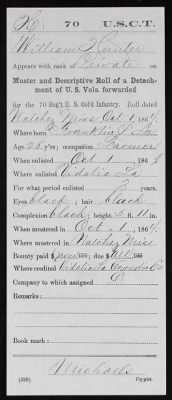 70 U.S.C.T.
William Hunter
Appears with rank of Private on
Muster and Descriptive Roll of a Detach-
ment of U. S. Vols. forwarded
for the 70 Reg't U. S. Col'd Infantry. Roll dated
Natchez Miss Oct 1, 1864.
Where born Franklin J La
Age 25 y'rs; occupation Farmer
When enlisted Oct 1, 1864
Where enlisted Vidalia La
For what period enlisted 3 years.
Eyes black; hair black
Complexion black; height 5 ft. 11 in.
When mustered in Oct 1, 1864.
Where mustered in Natchez Miss
Bounty paid $ 100; due $ 100
Where credited Vidalia La
Company to which assigned D
Remarks:
Book mark:
Michaels
(339) Copyist.